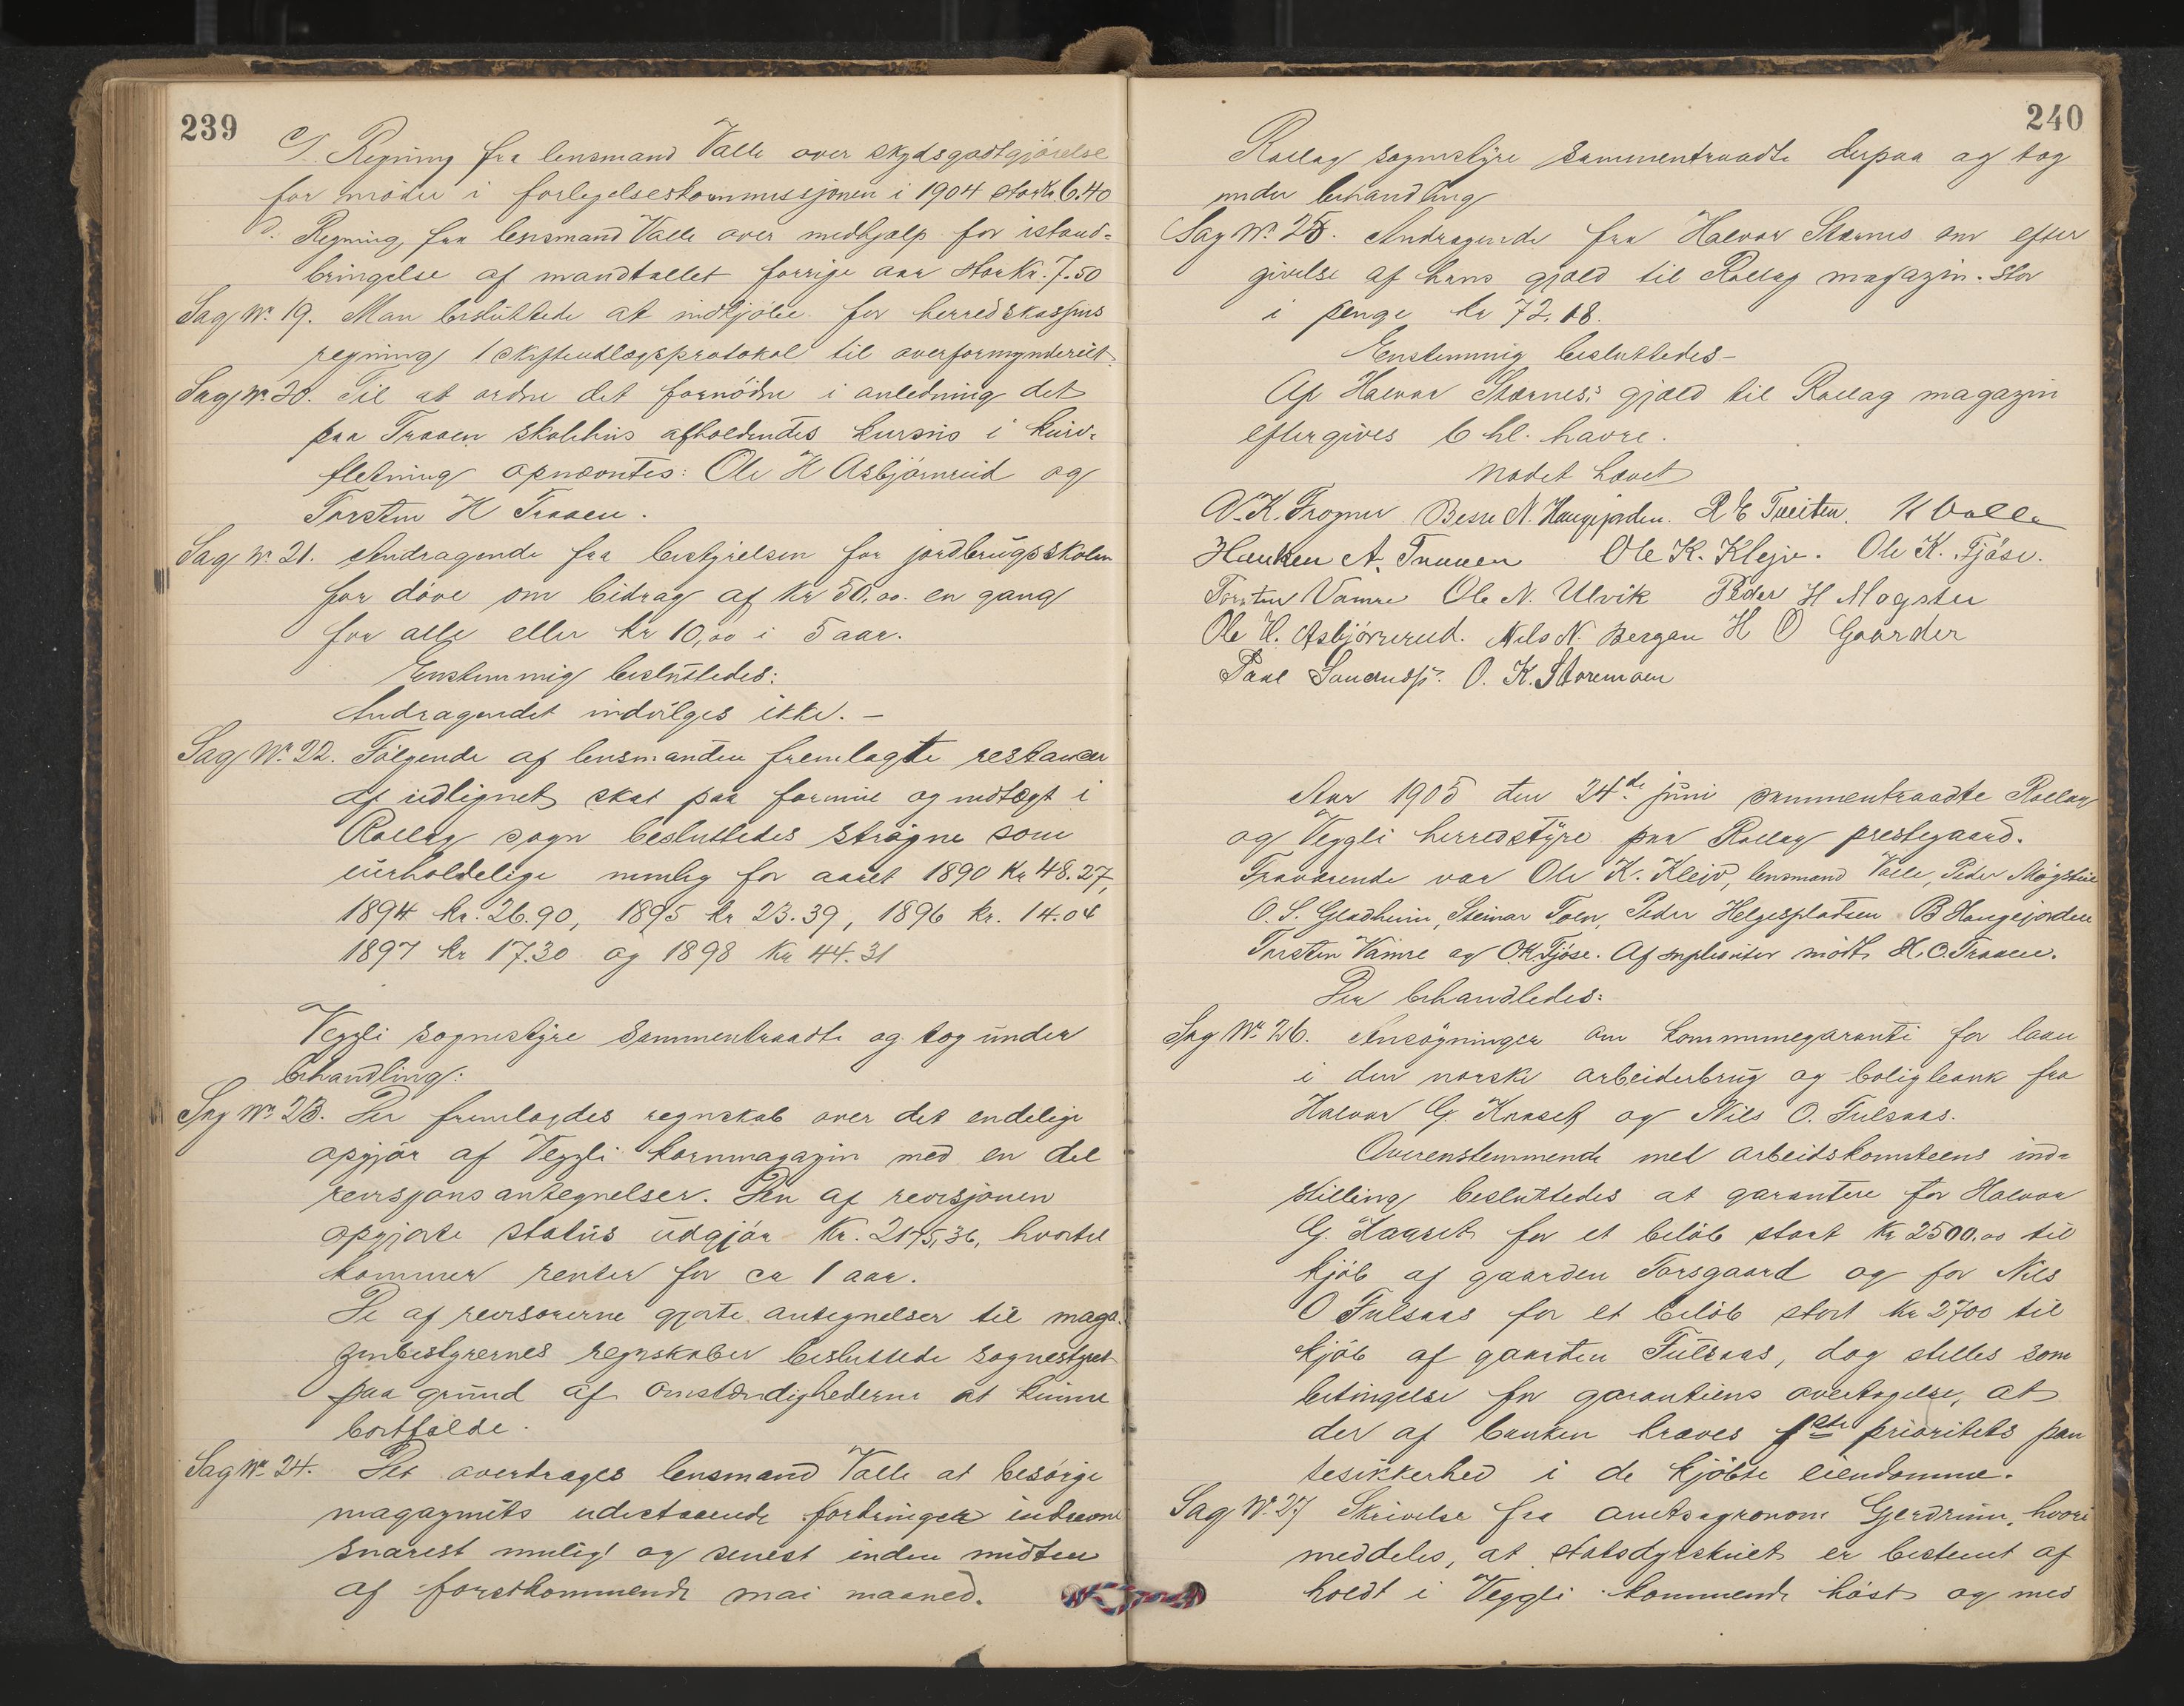 239
c/. Regning fra lensmand Valle over skydsgodtgjörelse
for möder i forligelseskommissjonen i 1904 stor kr. 6.40
d. Regning fra lensmand Valle over medhjælp for istand-
bringelse af mandtallet forrige aar stor Kr. 7.50
Sag Nr. 19. Man besluttede at indkjöbe for herredskassens
regning 1 skifteudlægsprotokol til overformynderiet.
Sag Nr. 20. Til at ordne det fornödne i anledning det
paa Traaen skolehus afholdendes kursus i kurv-
fletning opnævntes: Ole H Asbjörnrud og
Torsten H Traaen.
Sag Nr. 21. Andragende fra bestyrelsen for jordbrugsskolen
for döve om bidrag af Kr 50,00 en gang
for alle eller kr 10,00 i 5 aar.
Enstemmig besluttedes:
Andragendet indvilges ikke. —
Sag Nr. 22. Fölgende af lensmanden fremlagte restancer
af udlignet skat paa formue og indtægt i
Rollag sogn besluttedes strögne som
uerholdelige nemlig for aaret 1890 Kr 48.27,
1894 kr. 26.90, 1895 kr 23.39, 1896 kr. 14.04
1897 kr 17.30 og 1898 Kr 44.31
Veggli sognestyre sammentraadte og tog under
behandling:
Sag Nr. 23. Der fremlagdes regnskab over det endelige
opgjör af Veggli kornmagazin med en del
revisjonsantegnelser. Den af revisjonen
opgjorte status udgjör Kr. 2175,36, hvortil
kommer renter for ca 1 aar.
De af revisorerne gjorte antegnelser til maga-
zinbestyrernes regnskaber besluttede sognestyret
paa grund af omstændighederne at kunne
bortfalde.
Sag Nr. 24. Det overdrages lensmand Valle at besörge
magazinets udestaaende fordringer
snarest mulig og senest inden midten
af förstkommende mai maaned.
240
Rollag sognestyre sammentraadte derpaa og tog
under behandling
Sag Nr. 25. Andragende fra Halvor Stærnes om efter
givelse af hans gjæld til Rollag magazin. Stor
i penge kr 72.18.
Enstemmig besluttedes —
Af Halvor Stærnes's gjæld til Rollag magazin
eftergives 6 hl. havre.
Mødet hævet
N. K. Frogner Besse N. Haugejorden. R E Tveiten. Valle
Hauken A. Traaen Ole K. Klejv. Ole K. Fjöse.
Torsten Vamre Ole N. Ulvik Peder H Mogster
Ole H. Asbjörnrud. Nils N. Bergan H O Gaarder
Paal O. K. Storemoen
Aar 1905 den 24de juni sammentraadte Rollag
og Veggli herredstyre paa Rollag prestegaard.
Fraværende var Ole K. Klejv, lensmand Valle, Peder Mogster
O. S. Gladheim, Steinar Toen, Peder Helgespladsen B Haugejorden
Torsten Vamre og O. K. Fjöse. Af suplianter mødte H. O. Traaen.
Der behandledes:
Sag Nr. 26. Ansögninger om kommunegaranti for laan
i den norske arbeiderbrug og boligbank fra
Halvor G. Kaaset og Nils O. Fulsaas.
Overenstemmende med arbeidskomiteens ind-
stilling besluttedes at garantere for Halvor
G. Kaaset for et belöb stort Kr 2500.00 til
kjöb af gaarden Torsgaard og for Nils
O Fulsaas for et belöb stort Kr 2700 til
kjöb af gaarden Fulsaas, dog stilles som
betingelse for garantiens overtagelse, at
der af banken kræves 1ste prioritets pan
tesikkerhed i de kjöbte eiendomme.
Sag Nr. 27 Skrivelse fra amtsagronom Gjerdrum, hvori
meddeles, at statsdyrskuet er bestemt af
holdt i Veggli kommende höst og med